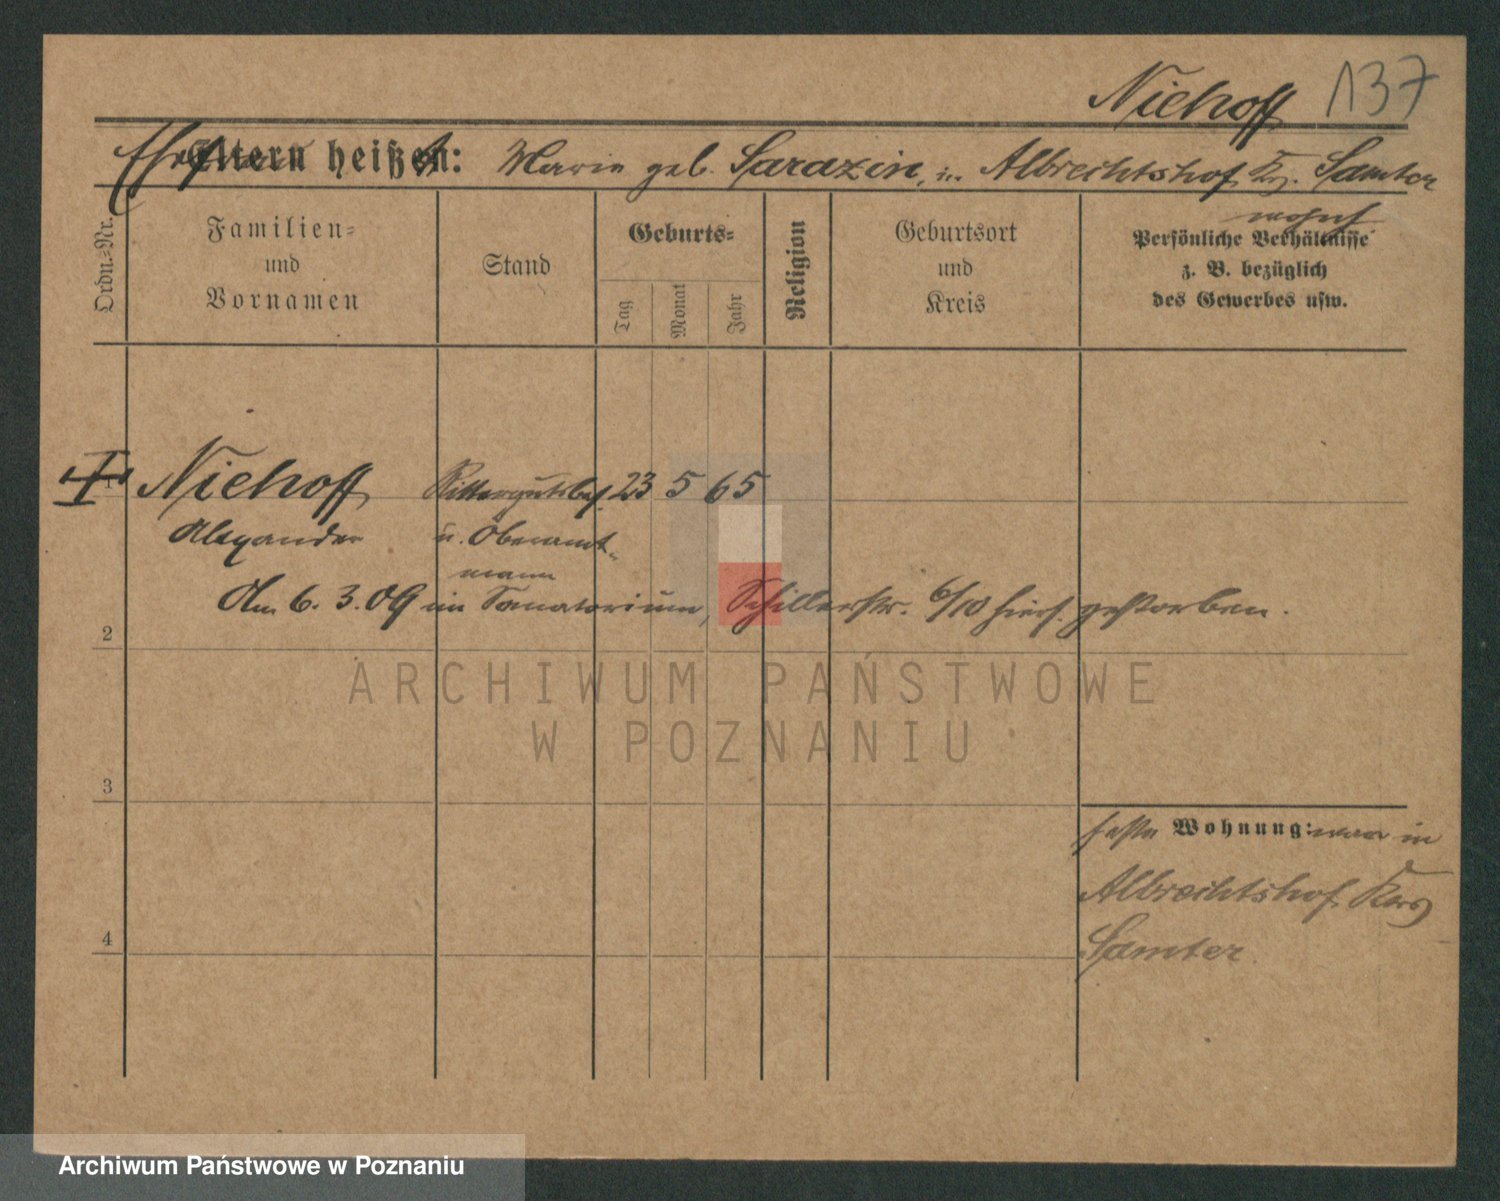 Niehoff 137
Ehefrau Eltern heißen: Marie geb. Sarazin, in Albrechtshof Kr. Samter
wohnh.
Ordn.-Nr.
Familien-
und
Vornamen
Stand
Geburts-
Tag
Monat
Jahr
Religion
Geburtsort
und
Kreis
Persönliche Verhältnisse
z. B. bezüglich
des Gewerbes usw.
1 Niehoff Rittergutsbes. 23 5 65
Alexander u. Oberamt-
mann
Am 6. 3. 09 im Sanatorium, Schillerstr. 6/10 hiers. gestorben.
2
3
4
feste Wohnung: war in
Albrechtshof, Kreis
Samter
ARCHIWUM PAŃSTWOWE
W POZNANIU
Archiwum Państwowe w Poznaniu